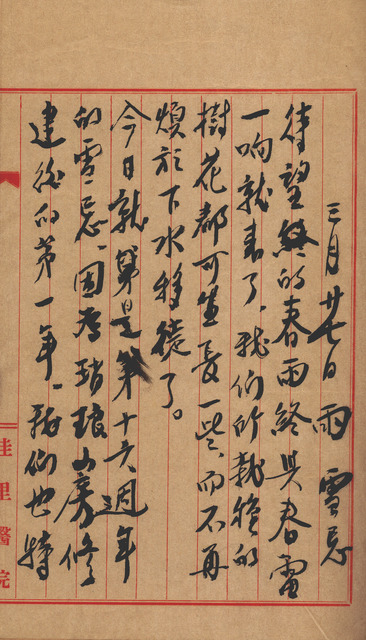 三月廿七日 雨 雪忌
待望的春雨終與春雷
一响就來了，我們所栽種的
樹花都可生長一些，而不再
煩於下水移徒了。
今日就算是第十六週年
的雪忌，因為琑琅山房修
建後的第一年，我們也特
佳里醫院